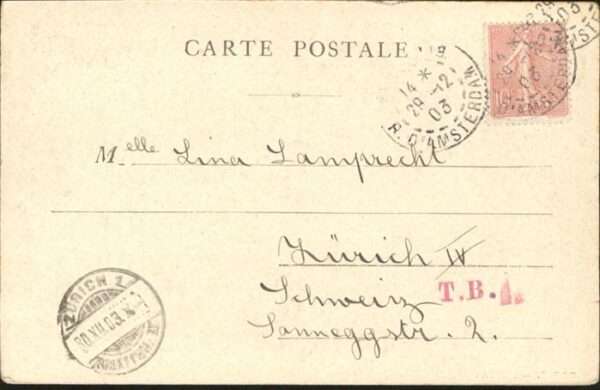 CARTE POSTALE
14 * 
29 -12
03
R. D'AMSTERDAM
Melle Lina Lamprecht
Zürich IV
Schweiz
T.B.
Sonneggstr. 2.
ZÜRICH 1